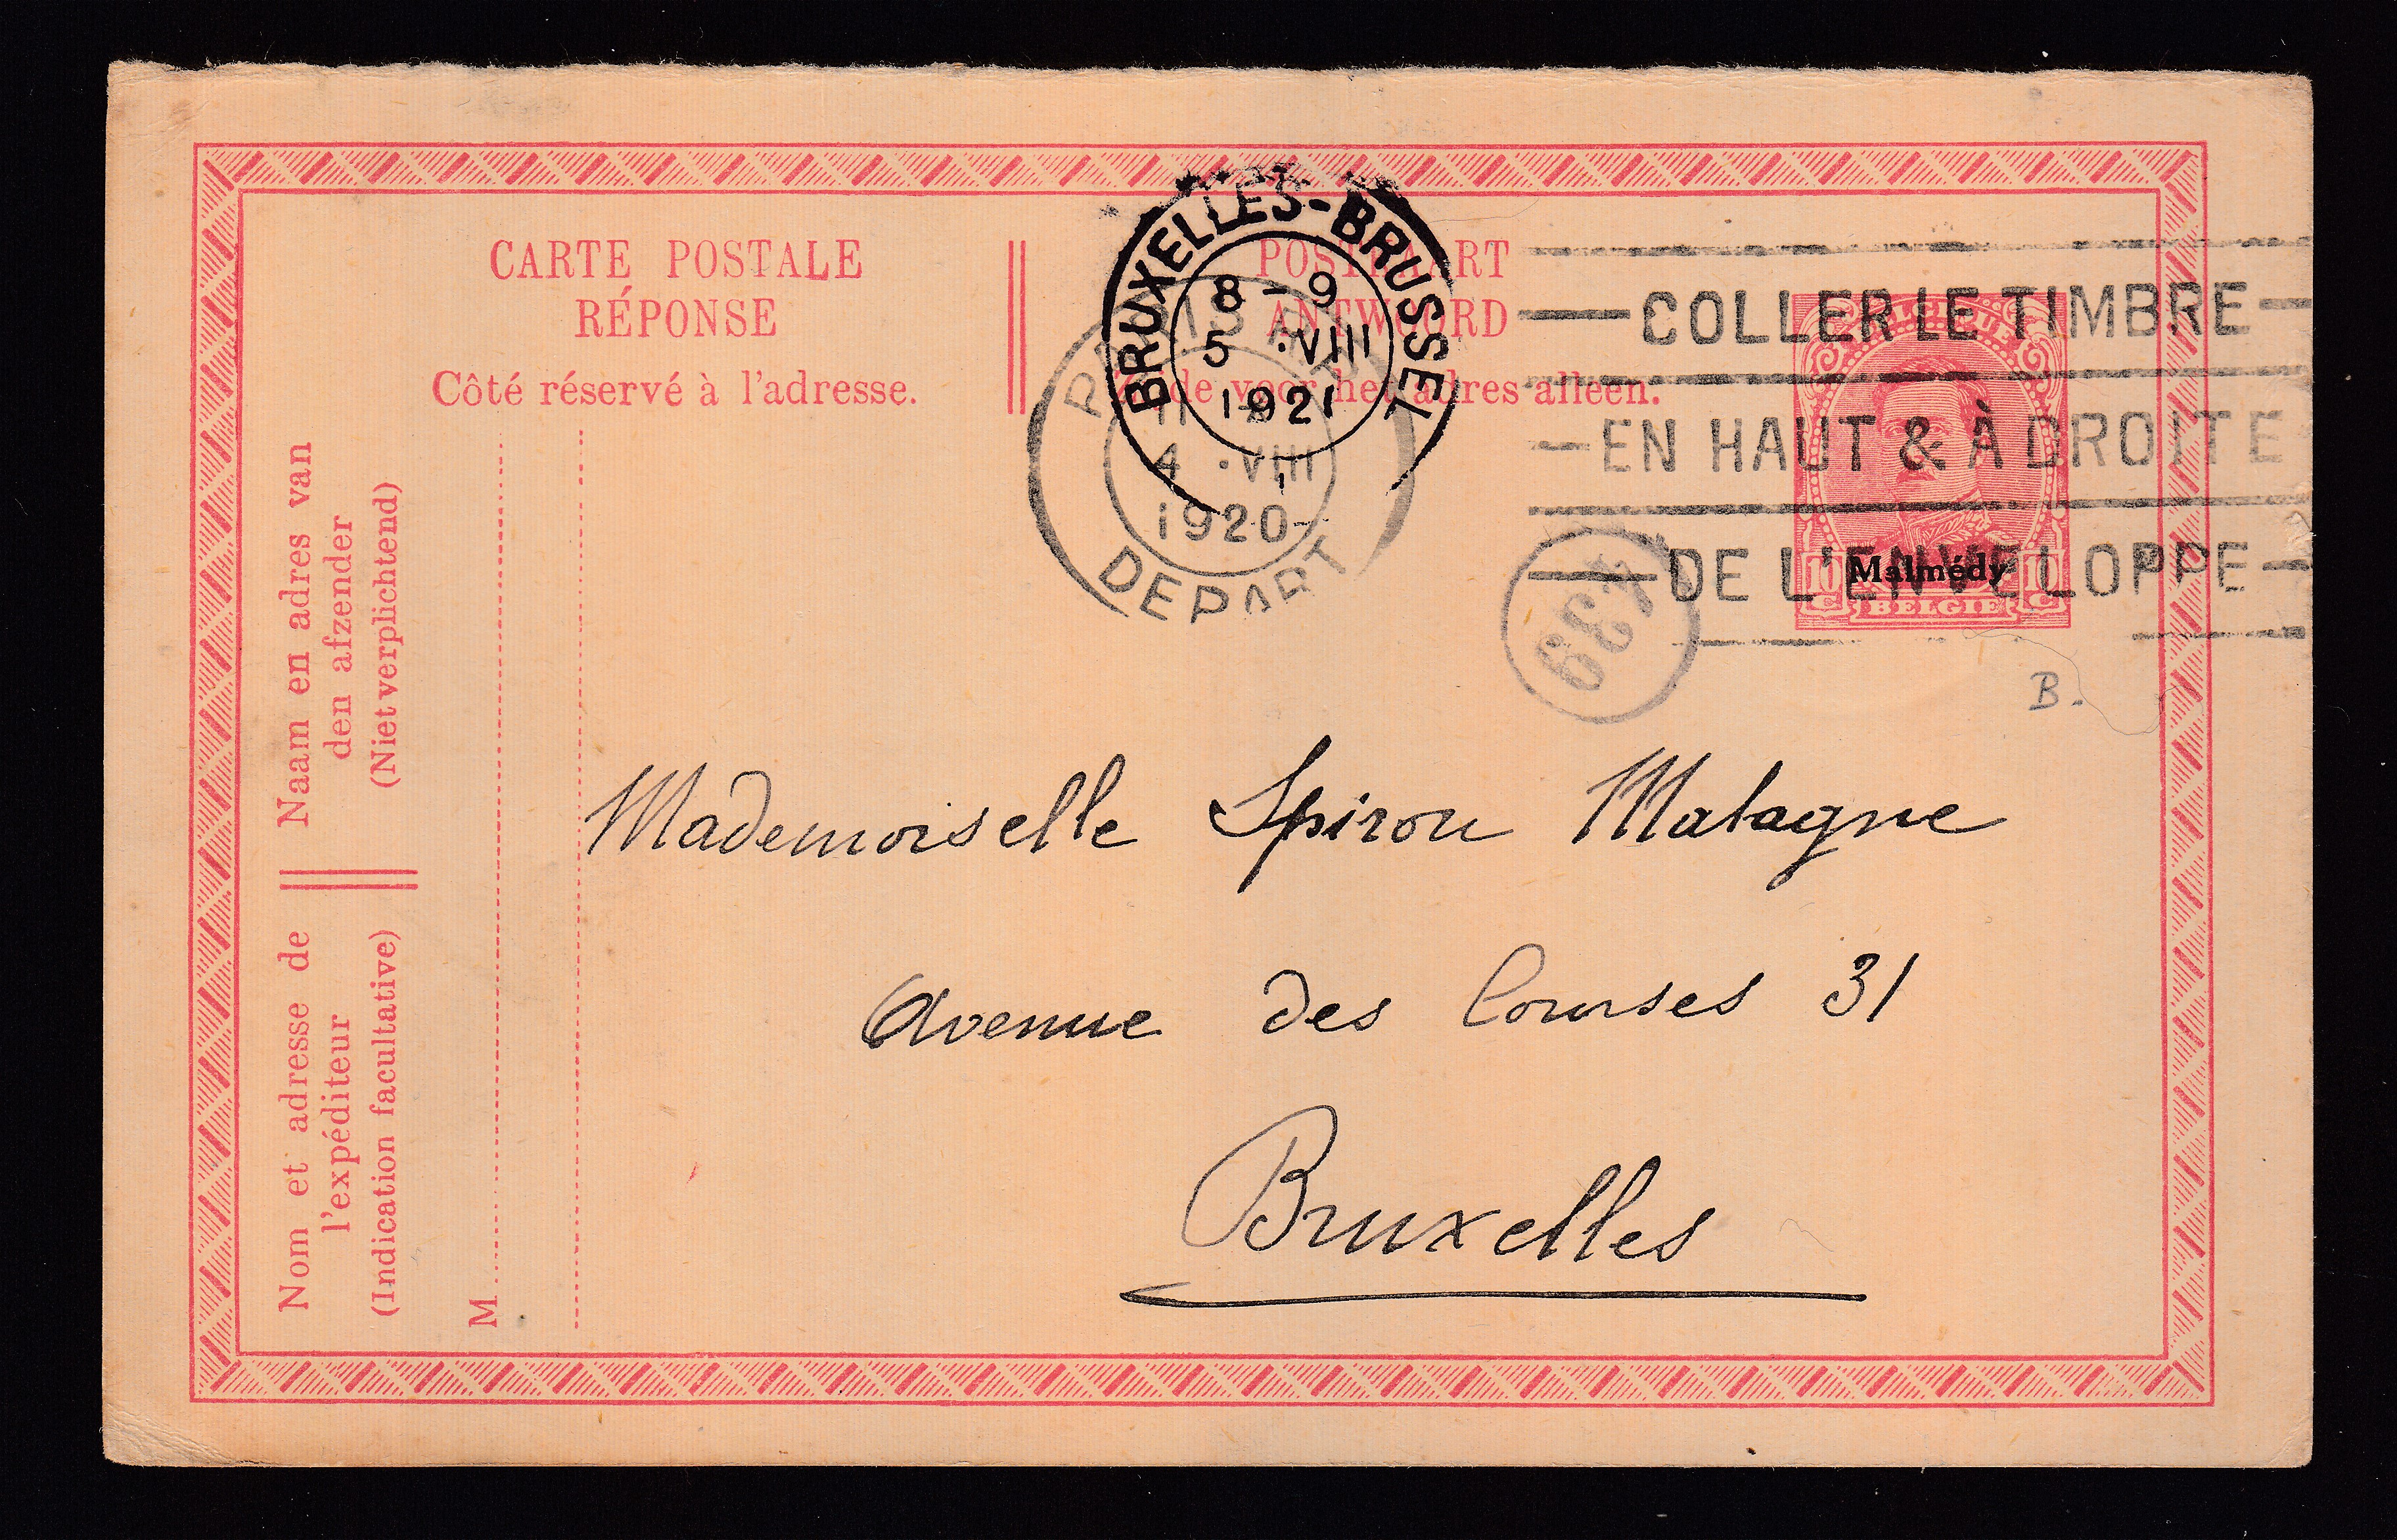 CARTE POSTALE
RÉPONSE
Côté réservé à l'adresse.
POSTKAART
ANTWOORD
Zijde voor het adres alleen.
BRUXELLES-BRUSSEL
8-9
5 ·VIII
1921
4 ·VIII
1920
DEPART
COLLER LE TIMBRE
EN HAUT & À DROITE
DE L'ENVELOPPE
Malmédy
10 C BELGIE 10 C
439
B.
Naam en adres van
den afzender
(Niet verplichtend)
Nom et adresse de
l'expéditeur
(Indication facultative)
M
Mademoiselle Spirou Malagne
Avenue des Courses 31
Bruxelles